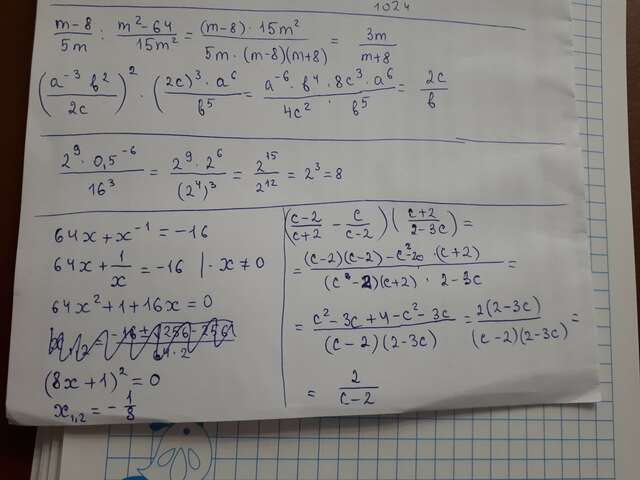 1024
m-8/5m : m²-64/15m² = (m-8)·15m²/5m·(m-8)(m+8) = 3m/m+8
(a⁻³b²/2c)² · ((2c)³·a⁶/b⁵) = a⁻⁶·b⁴·8c³·a⁶/4c²·b⁵ = 2c/b
2⁹·0,5⁻⁶/16³ = 2⁹·2⁶/(2⁴)³ = 2¹⁵/2¹² = 2³ = 8
64x+x⁻¹ = -16
64x+1/x = -16 |·x≠0
64x²+1+16x=0
(8x+1)²=0
x₁,₂ = -1/8
(c-2/c+2 - c/c-2)(c+2/2-3c) =
= (c-2)(c-2)-c²-2c·(c+2)/(c-2)(c+2)·2-3c =
= c²-3c+4-c²-3c/(c-2)(2-3c) = 2(2-3c)/(c-2)(2-3c) =
= 2/c-2